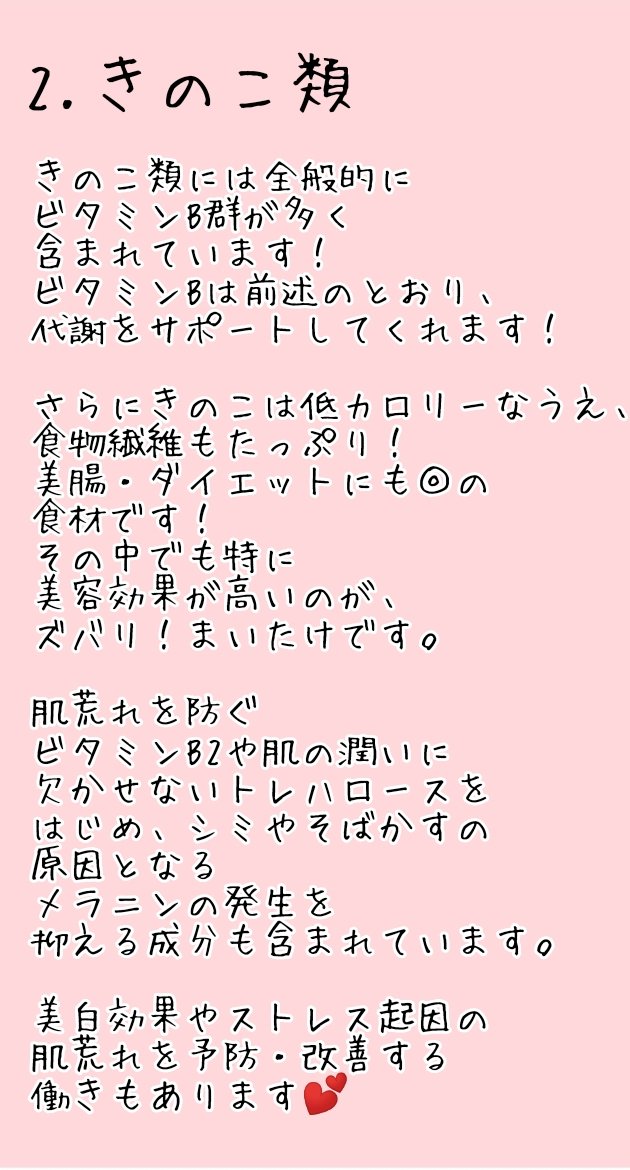 2.きのこ類
きのこ類には全般的に
ビタミンB群が多く
含まれています！
ビタミンBは前述のとおり、
代謝をサポートしてくれます！
さらにきのこは低カロリーなうえ、
食物繊維もたっぷり！
美腸・ダイエットにも◎の
食材です！
その中でも特に
美容効果が高いのが、
ズバリ！まいたけです。
肌荒れを防ぐ
ビタミンB2や肌の潤いに
欠かせないトレハロースを
はじめ、シミやそばかすの
原因となる
メラニンの発生を
抑える成分も含まれています。
美白効果やストレス起因の
肌荒れを予防・改善する
働きもあります💕